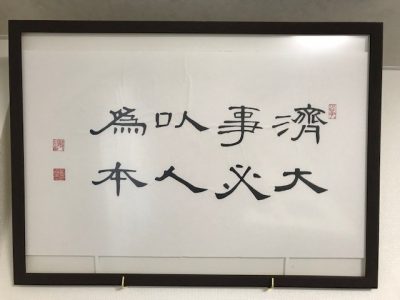 濟大
事必
以人
爲本